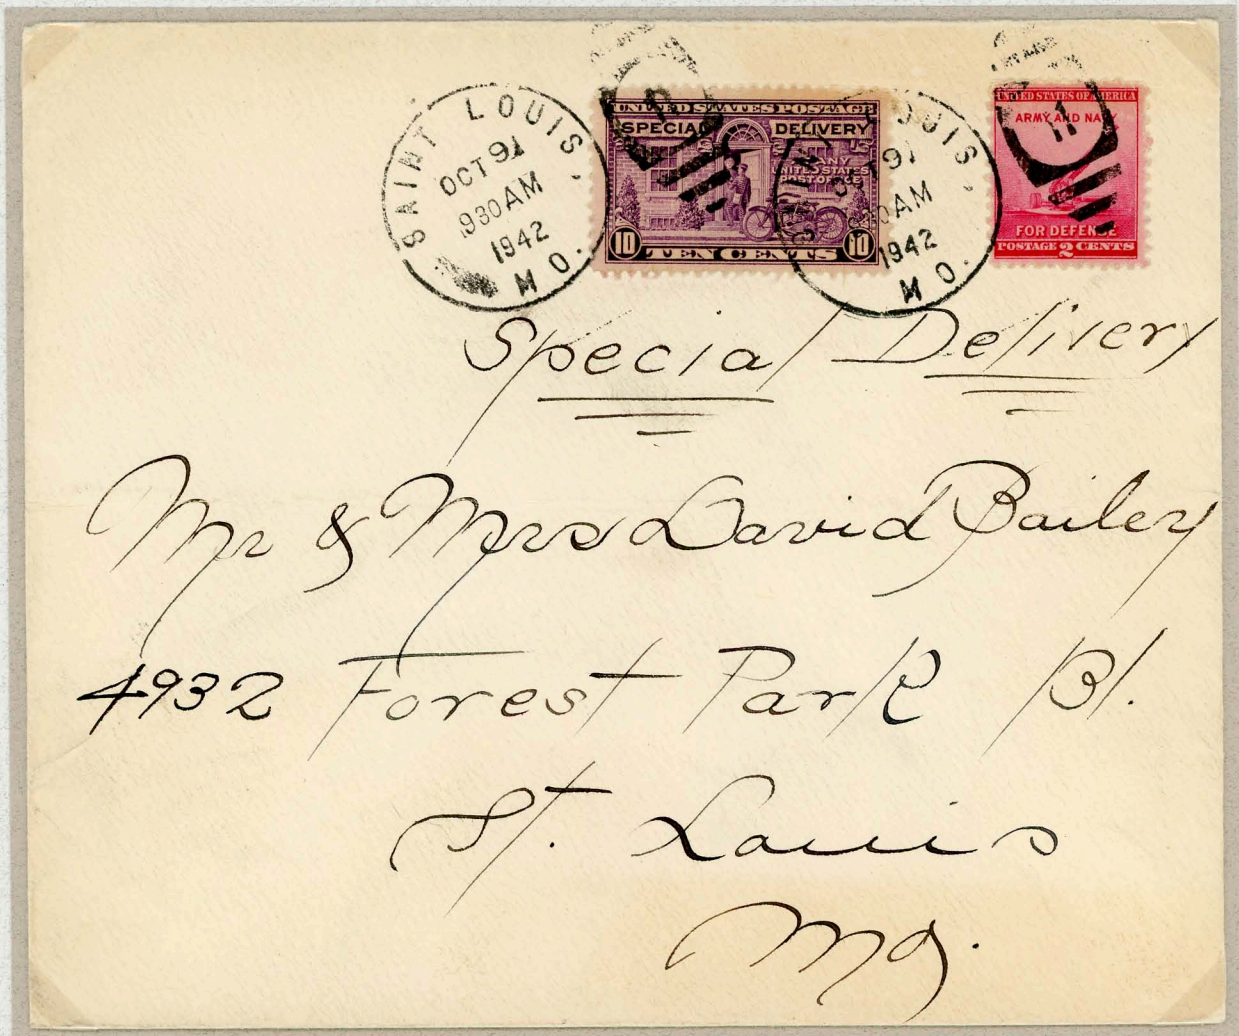 SAINT LOUIS, MO.
OCT 91
930 AM
1942
UNITED STATES POSTAGE
SPECIAL DELIVERY
ANY
UNITED STATES
POST OFFICE
10 TEN CENTS 10
SAINT LOUIS, MO.
OCT 91
930 AM
1942
UNITED STATES OF AMERICA
ARMY AND NAVY
11
FOR DEFENSE
POSTAGE 2 CENTS
Special Delivery
Mr & Mrs David Bailey
4932 Forest Park Bl.
St. Louis
Mo.